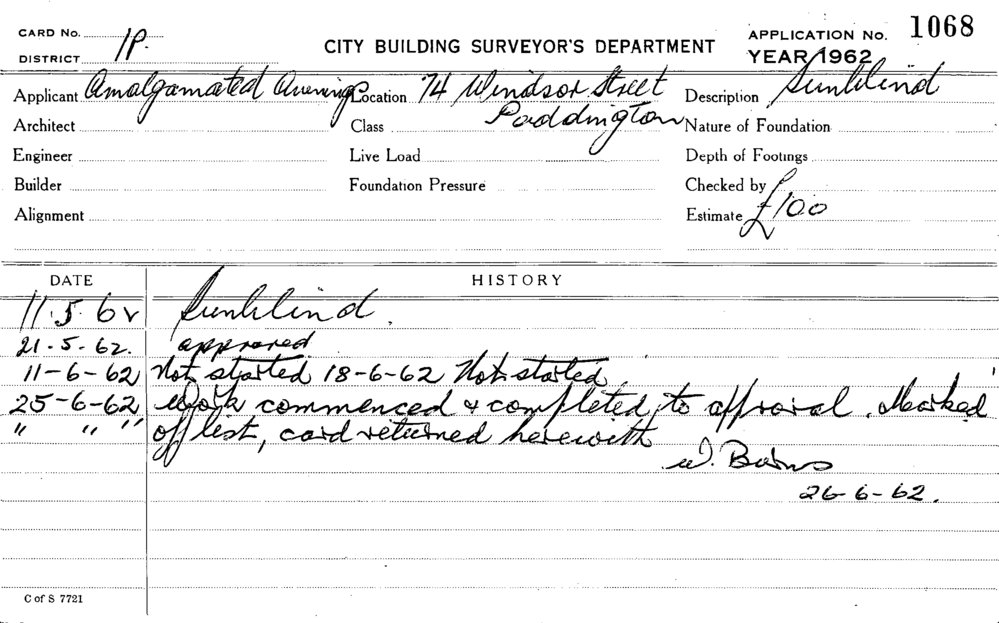 CARD No. 1P. CITY BUILDING SURVEYOR'S DEPARTMENT APPLICATION No. 1068
DISTRICT YEAR 1962
Applicant Amalgamated Awnings Location 74 Windsor Street Description Sunblind
Paddington
Architect Class Nature of Foundation
Engineer Live Load Depth of Footings
Builder Foundation Pressure Checked by
Alignment Estimate £100
DATE HISTORY
11.5.62 Sunblind.
21-5-62. approved
11-6-62 Not started 18-6-62 Not started
25-6-62 Work commenced & completed, to approval. Marked
" " " off list, card returned herewith
W. Burns
26-6-62.
C of S 7721